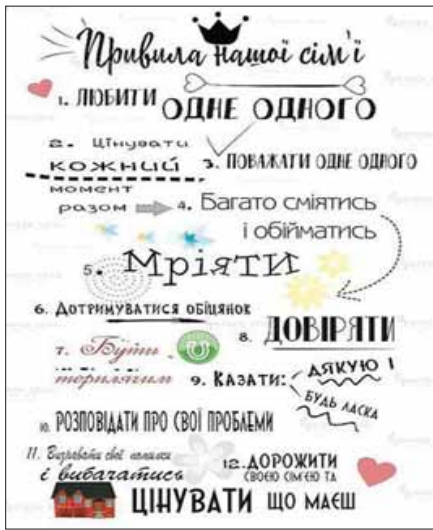 Привила нашої сім'ї
1. ЛЮБИТИ ОДНЕ ОДНОГО
2. Цінувати
кожний
момент
разом
3. ПОВАЖАТИ ОДНЕ ОДНОГО
4. Багато сміятись
і обійматись
5. Мріяти
6. Дотримуватися обіцянок
7. Бути
терплячим
8. ДОВІРЯТИ
9. Казати:
ДЯКУЮ І
БУДЬ ЛАСКА
10. РОЗПОВІДАТИ ПРО СВОЇ ПРОБЛЕМИ
11. Визнавати свої помилки
і вибачатись
12. ДОРОЖИТИ
СВОЄЮ СІМ'ЄЮ ТА
ЦІНУВАТИ ЩО МАЄШ